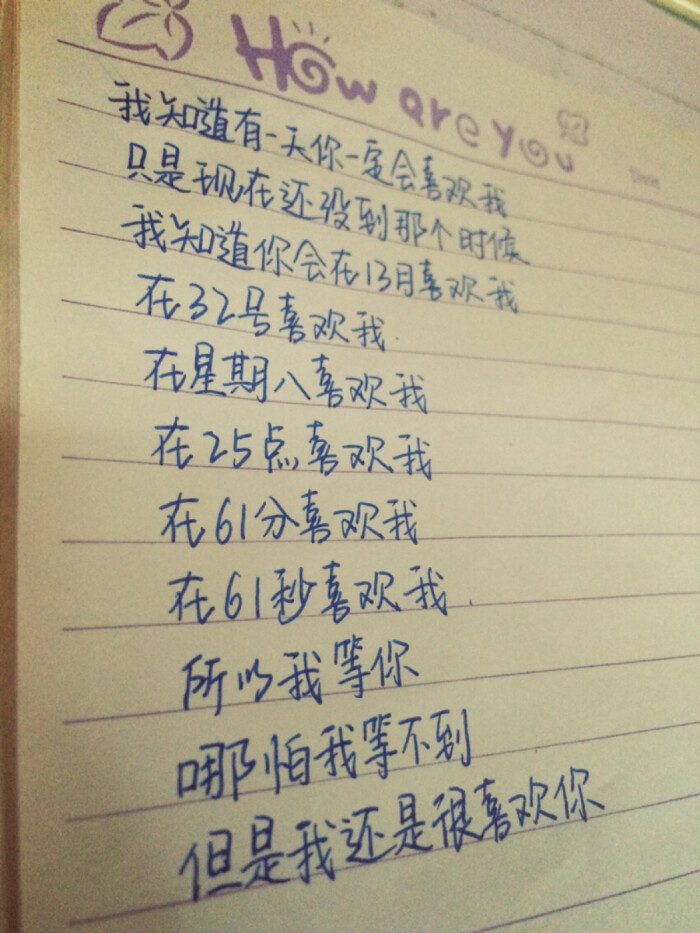 How are you
我知道有一天你一定会喜欢我
只是现在还没到那个时候
我知道你会在13月喜欢我
在32号喜欢我.
在星期八喜欢我
在25点喜欢我
在61分喜欢我
在61秒喜欢我.
所以我等你
哪怕我等不到
但是我还是很喜欢你